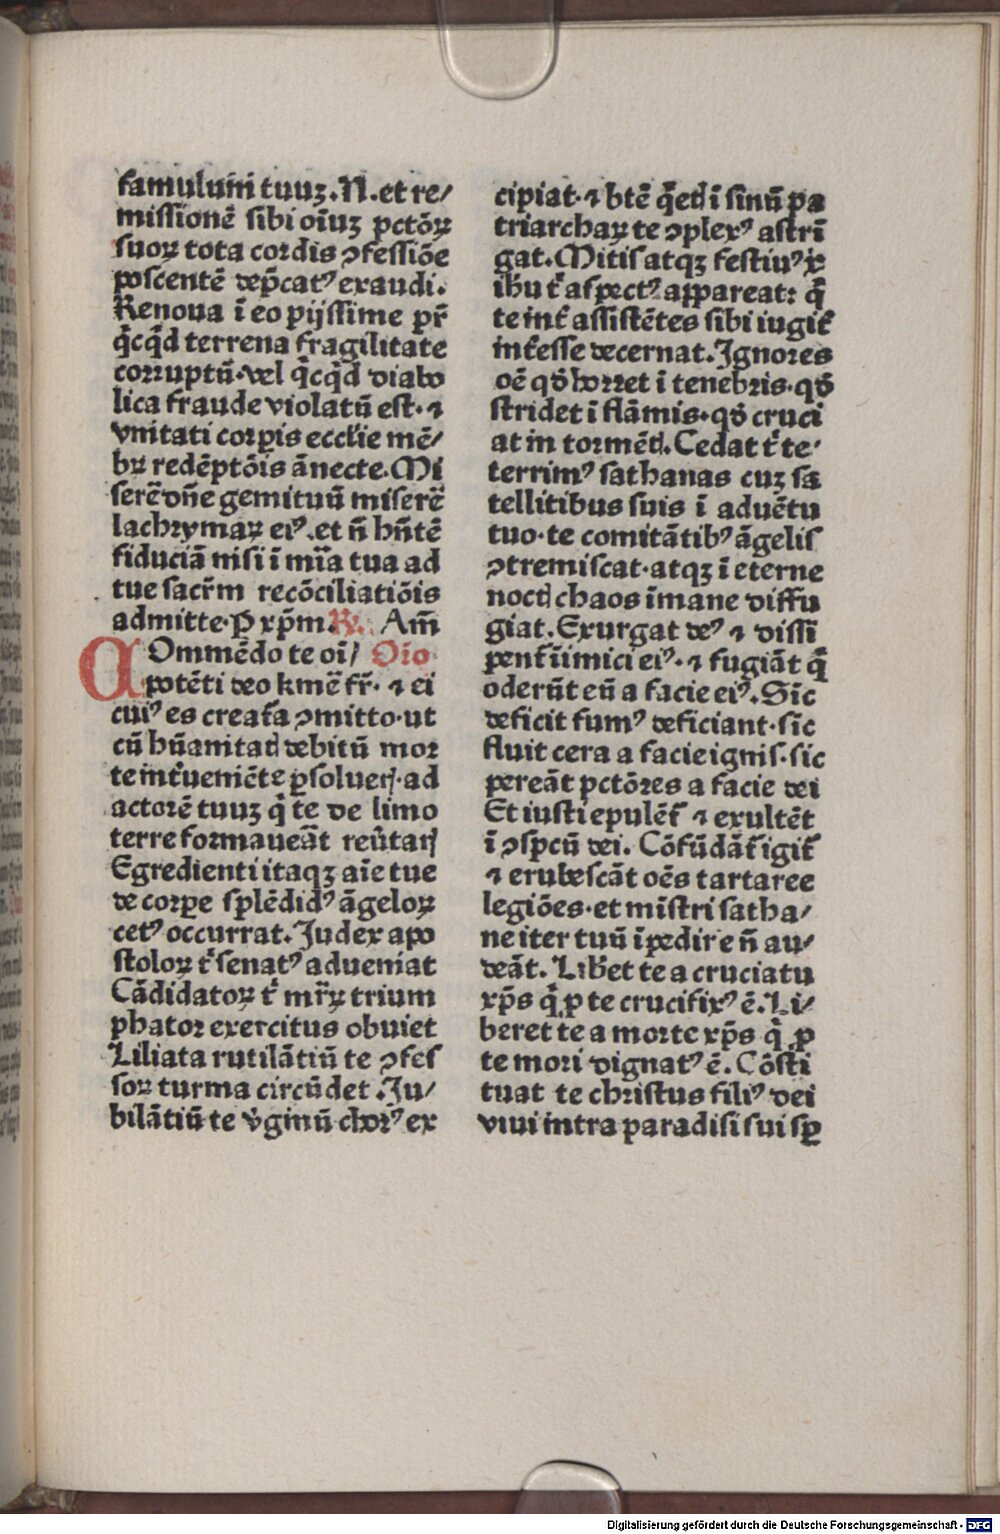 famulum tuuꝫ.N.et re/
missionē sibi oīuꝫ pctōꝝ
suoꝝ tota cordis ↄfessiōe
poscentē dep̄catꝰ exaudi.
Renoua ī eo pijssime pr̄
q̄cq̄d terrena fragilitate
corruptū·vel q̄cq̄d diabo
lica fraude violatū est·⁊
vnitati corꝑis eccl̄ie mē/
bꝝ redēptōis ānecte.Mi
serē dn̄e gemituū miserē
lachrymaꝝ eiꝰ.et n̄ hn̄tē
fiduciā nisi ī mīa tua ad
tue sacrm̄ recōciliatiōis
admitte·P xp̄m ℞. Am̄
COmmēdo te oī/ Oīo
potēti deo kmē fr̄· ⁊ ei
cuiꝰ es creat̄a ↄmitto·ut
cū hūanitaꝭ debitū mor
te int̄ueniēte ꝑsoluerꝭ·ad
actorē tuuꝫ q̄ te de limo
terre formaueāt reūtarꝭ
Egredienti itaqꝫ aīe tue
de corꝑe splēdidꝰ āgeloꝝ
cetꝰ occurrat.Judex apo
stoloꝝ t̄ senatꝰ adueniat
Cādidatoꝝ t̄ mr̄ꝝ trium
phator exercitus obuiet
Liliata rutilātiū te ↄfes
soꝝ turma circūdet.Ju/
bilātiū te v̄ginū chorꝰ ex
cipiat·⁊ btē q̄etꝭ ī sinū pa
triarchaꝝ te ↄplexꝰ astrī
gat.Mitis atqꝫ festiuꝰ x̄
ih̄u t̄ aspectꝰ appareat: q̄
te int̄ assistētes sibi iugit̄
int̄esse decernat.Ignores
oē qd̄ horret ī tenebris·qd̄
stridet ī flāmis·qd̄ cruci
at in tormētꝭ.Cedat t̄ te·
terrimꝰ sathanas cuꝫ sa
tellitibus suis ī aduētu
tuo·te comitātibꝰ āgelis
ↄtremiscat·atqꝫ ī eterne
noctꝭ chaos īmane diffu
giat.Exurgat deꝰ ⁊ dissi
pent̄ īimici eiꝰ·⁊ fugiāt q̄
oderūt eū a facie eiꝰ.Sīc
deficit fumꝰ deficiant·sīc
fluit cera a facie ignis·sīc
pereāt pctōres a facie dei
Et iusti epulēt̄ ⁊ exultēt
ī ↄspcū dei. Cōfūdāt̄ igit̄
⁊ erubescāt oēs tartaree
legiōes·et mīstri satha/
ne iter tuū īpedire n̄ au/
deāt. Lib̄et te a cruciatu
xp̄s q̄ ꝓ te crucifixꝰ ē.Li/
beret te a morte xp̄s q̄ ꝓ
te mori dignatꝰ ē. Cōsti
tuat te christus filiꝰ dei
viui intra paradisi sui sꝑ
Digitalisierung gefördert durch die Deutsche Forschungsgemeinschaft - DFG